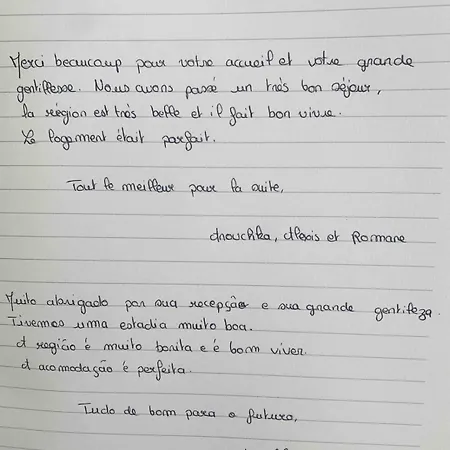 Merci beaucoup pour votre accueil et votre grande
gentillesse. Nous avons passé un très bon séjour,
la région est très belle et il fait bon vivre.
Le logement était parfait.
Tout le meilleur pour la suite,
Anouchka, Alexis et Romane
Muito obrigado por sua recepção e sua grande gentileza.
Tivemos uma estadia muito boa.
A região é muito bonita e é bom viver.
A acomodação é perfeita.
Tudo de bom para o futuro,